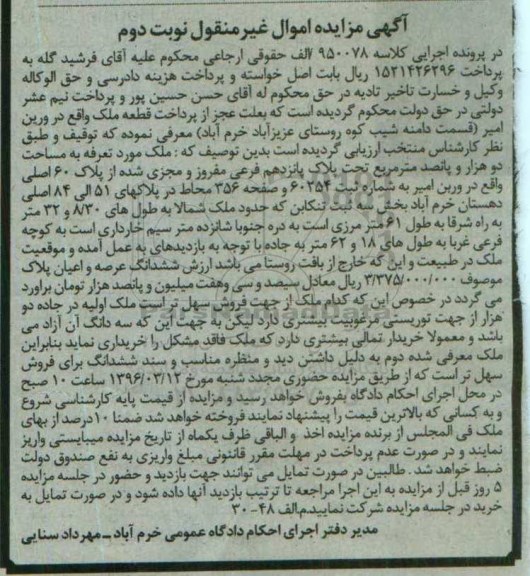 آگهی مزایده اموال غیرمنقول نوبت دوم
در پرونده اجرایی کلاسه ۹۵۰۰۷۸ /الف حقوقی ارجاعی محکوم علیه آقای فرشید گله به
پرداخت ۱۵۲۱۴۲۶۲۹۶ ریال بابت اصل خواسته و پرداخت هزینه دادرسی و حق الوکاله
وکیل و خسارت تاخیر تادیه در حق محکوم له آقای حسن حسین پور و پرداخت نیم عشر
دولتی در حق دولت محکوم گردیده است که بعلت عجز از پرداخت قطعه ملک واقع در وربن
امیر (قسمت دامنه شیب کوه روستای عزیزآباد خرم آباد) معرفی نموده که توقیف و طبق
نظر کارشناس منتخب ارزیابی گردیده است بدین توصیف که : ملک مورد تعرفه به مساحت
دو هزار و پانصد مترمربع تحت پلاک پانزدهم فرعی مفروز و مجزی شده از پلاک ۶۰ اصلی
واقع در وربن امیر به شماره ثبت ۶۰۲۵۴ و صفحه ۳۵۶ محاط در پلاکهای ۵۱ الی ۸۴ اصلی
دهستان خرم آباد بخش ثبت تنکابن که حدود ملک شمالا به طول های ۸/۳۰ و ۳۲ متر
به راه شرقا به طول ۶۱ متر مرزی است به دره جنوبا شانزده متر سیم خارداری است به کوچه
فرعی غربا به طول های ۱۸ و ۶۲ متر به جاده با توجه به بازدیدهای به عمل آمده و موقعیت
ملک در طبیعت و این که خارج از بافت روستا می باشد ارزش ششدانگ عرصه و اعیان پلاک
موصوف ۳/۳۷۵/۰۰۰/۰۰۰ ریال معادل سیصد و سی وهفت میلیون و پانصد هزار تومان براورد
می گردد در خصوص این که کدام ملک از جهت فروش سهل تر است ملک اولیه در جاده دو
هزار از جهت توریستی مرغوبیت بیشتری دارد لیکن به جهت این که سه دانگ آن آزاد می
باشد و معمولا خریدار تمالی بیشتری دارد که ملک فاقد مشکل را خریداری نماید بنابراین
ملک معرفی شده دوم به دلیل داشتن دید و منظره مناسب و سند ششدانگ برای فروش
سهل تر است که از طریق مزایده حضوری مجدد شنبه مورخ ۱۳۹۶/۰۲/۱۲ ساعت ۱۰ صبح
در محل اجرای احکام دادگاه بفروش خواهد رسید و مزایده از قیمت پایه کارشناسی شروع
و به کسانی که بالاترین قیمت را پیشنهاد نمایند فروخته خواهد شد ضمنا ۱۰درصد از بهای
ملک فی المجلس از برنده مزایده اخذ و الباقی ظرف یکماه از تاریخ مزایده میبایستی واریز
نمایند و در صورت عدم پرداخت در مهلت مقرر قانونی مبلغ واریزی به نفع صندوق دولت
ضبط خواهد شد . طالبین در صورت تمایل می توانند جهت بازدید و حضور در جلسه مزایده
۵ روز قبل از مزایده به این اجرا مراجعه تا ترتیب بازدید آنها داده شود و در صورت تمایل به
خرید در جلسه مزایده شرکت نمایید.م‌الف ۴۸-۳۰
مدیر دفتر اجرای احکام دادگاه عمومی خرم آباد ـ مهرداد سنایی